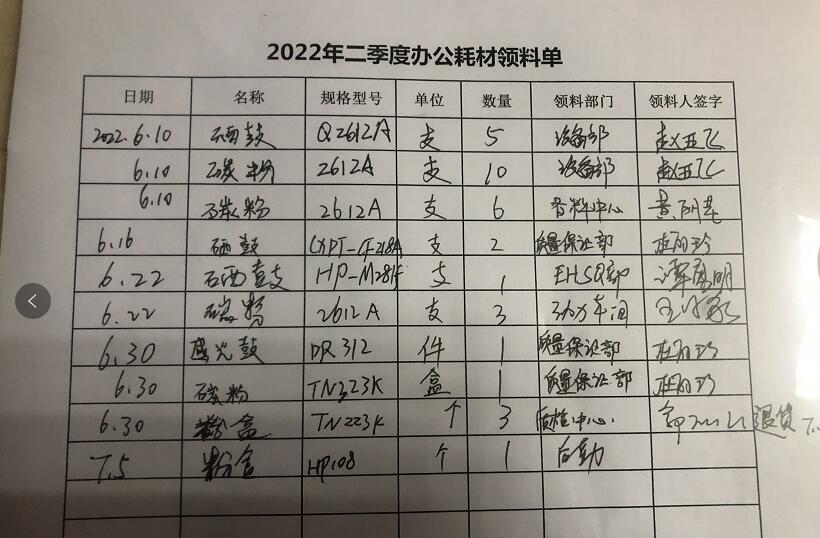 2022年二季度办公耗材领料单
日期 名称 规格型号 单位 数量 领料部门 领料人签字
2022.6.10 硒鼓 Q2612A 支 5 设备部 赵亚飞
6.10 碳粉 2612A 支 10 设备部 赵亚飞
6.10 碳粉 2612A 支 6 香料中心
6.16 硒鼓 支 2 质量保证部
6.22 硒鼓 支 1 EHSQ部
6.22 碳粉 2612A 支 3 动力车间
6.30 感光鼓 DR312 件 1 质量保证部
6.30 碳粉 TN323K 盒 1 质量保证部
6.30 粉盒 TN223K 个 3 质检中心 退货
7.5 粉盒 HP108 个 1 后勤